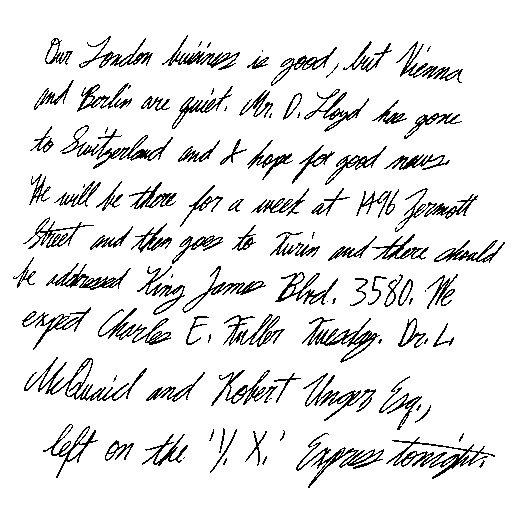 Our London business is good, but Vienna
and Berlin are quiet. Mr. D. Lloyd has gone
to Switzerland and I hope for good news.
He will be there for a week at 1496 Zermott
Street and then goes to Turin and there should
be addressed King James Blvd. 3580. We
expect Charles E. Fuller Tuesday. Dr. L.
McQuaid and Robert Unger Esq.,
left on the 'Y. X.' Express tonight.